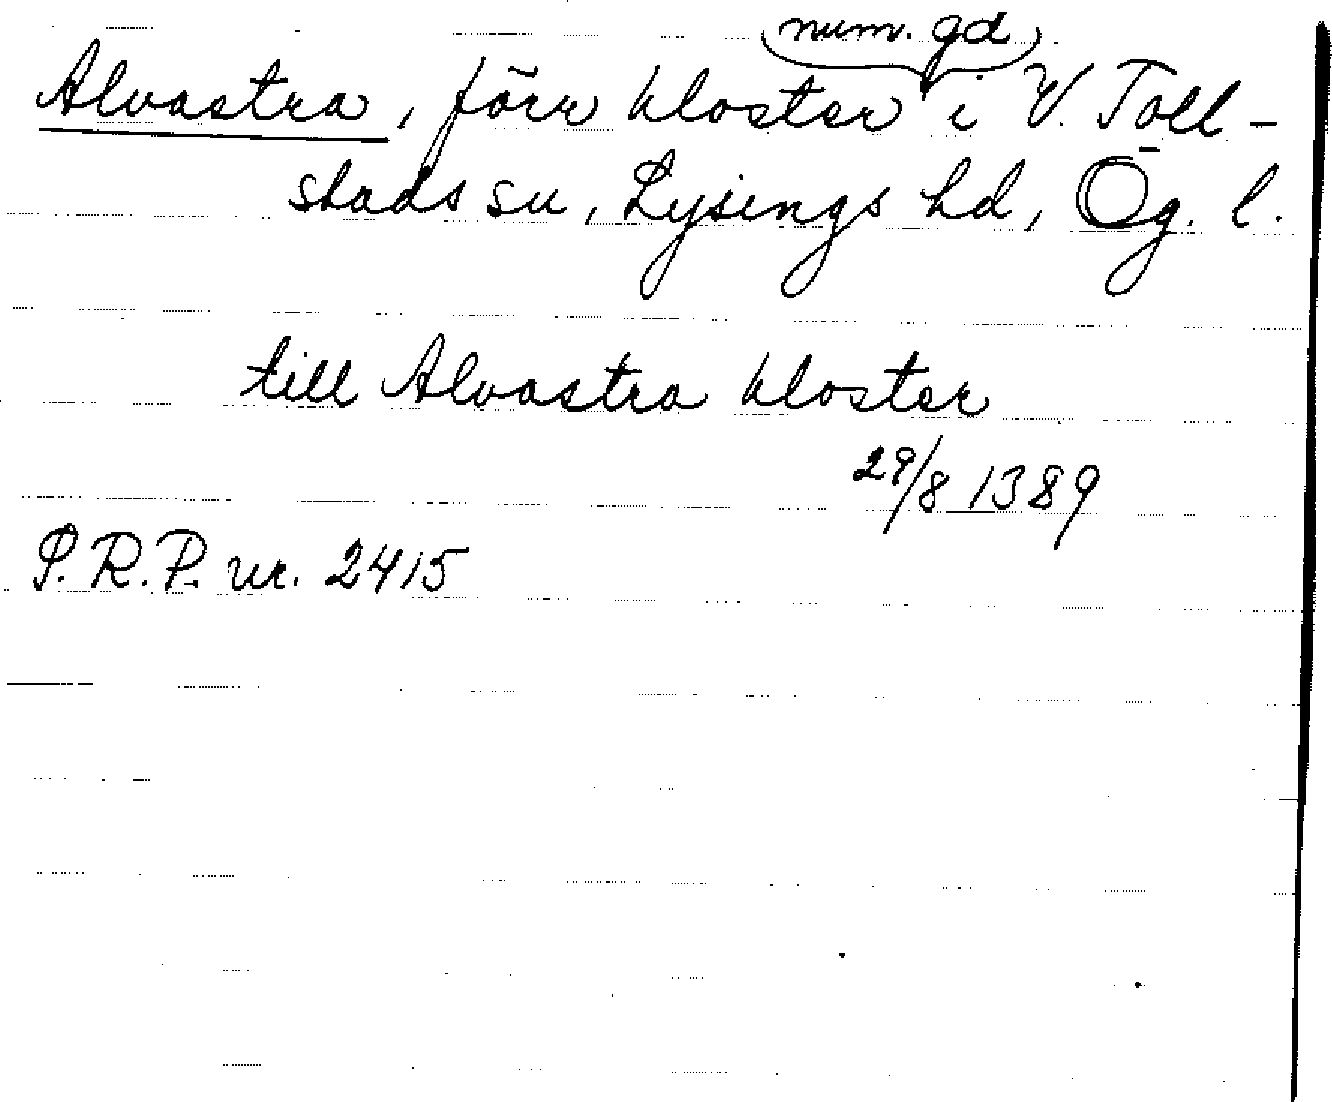 num. gd
Alvastra, förr kloster i V. Toll-
stads sn, Lysings hd, Ög. l.
till Alvastra kloster
29/8 1389
P.R.P. nr. 2415